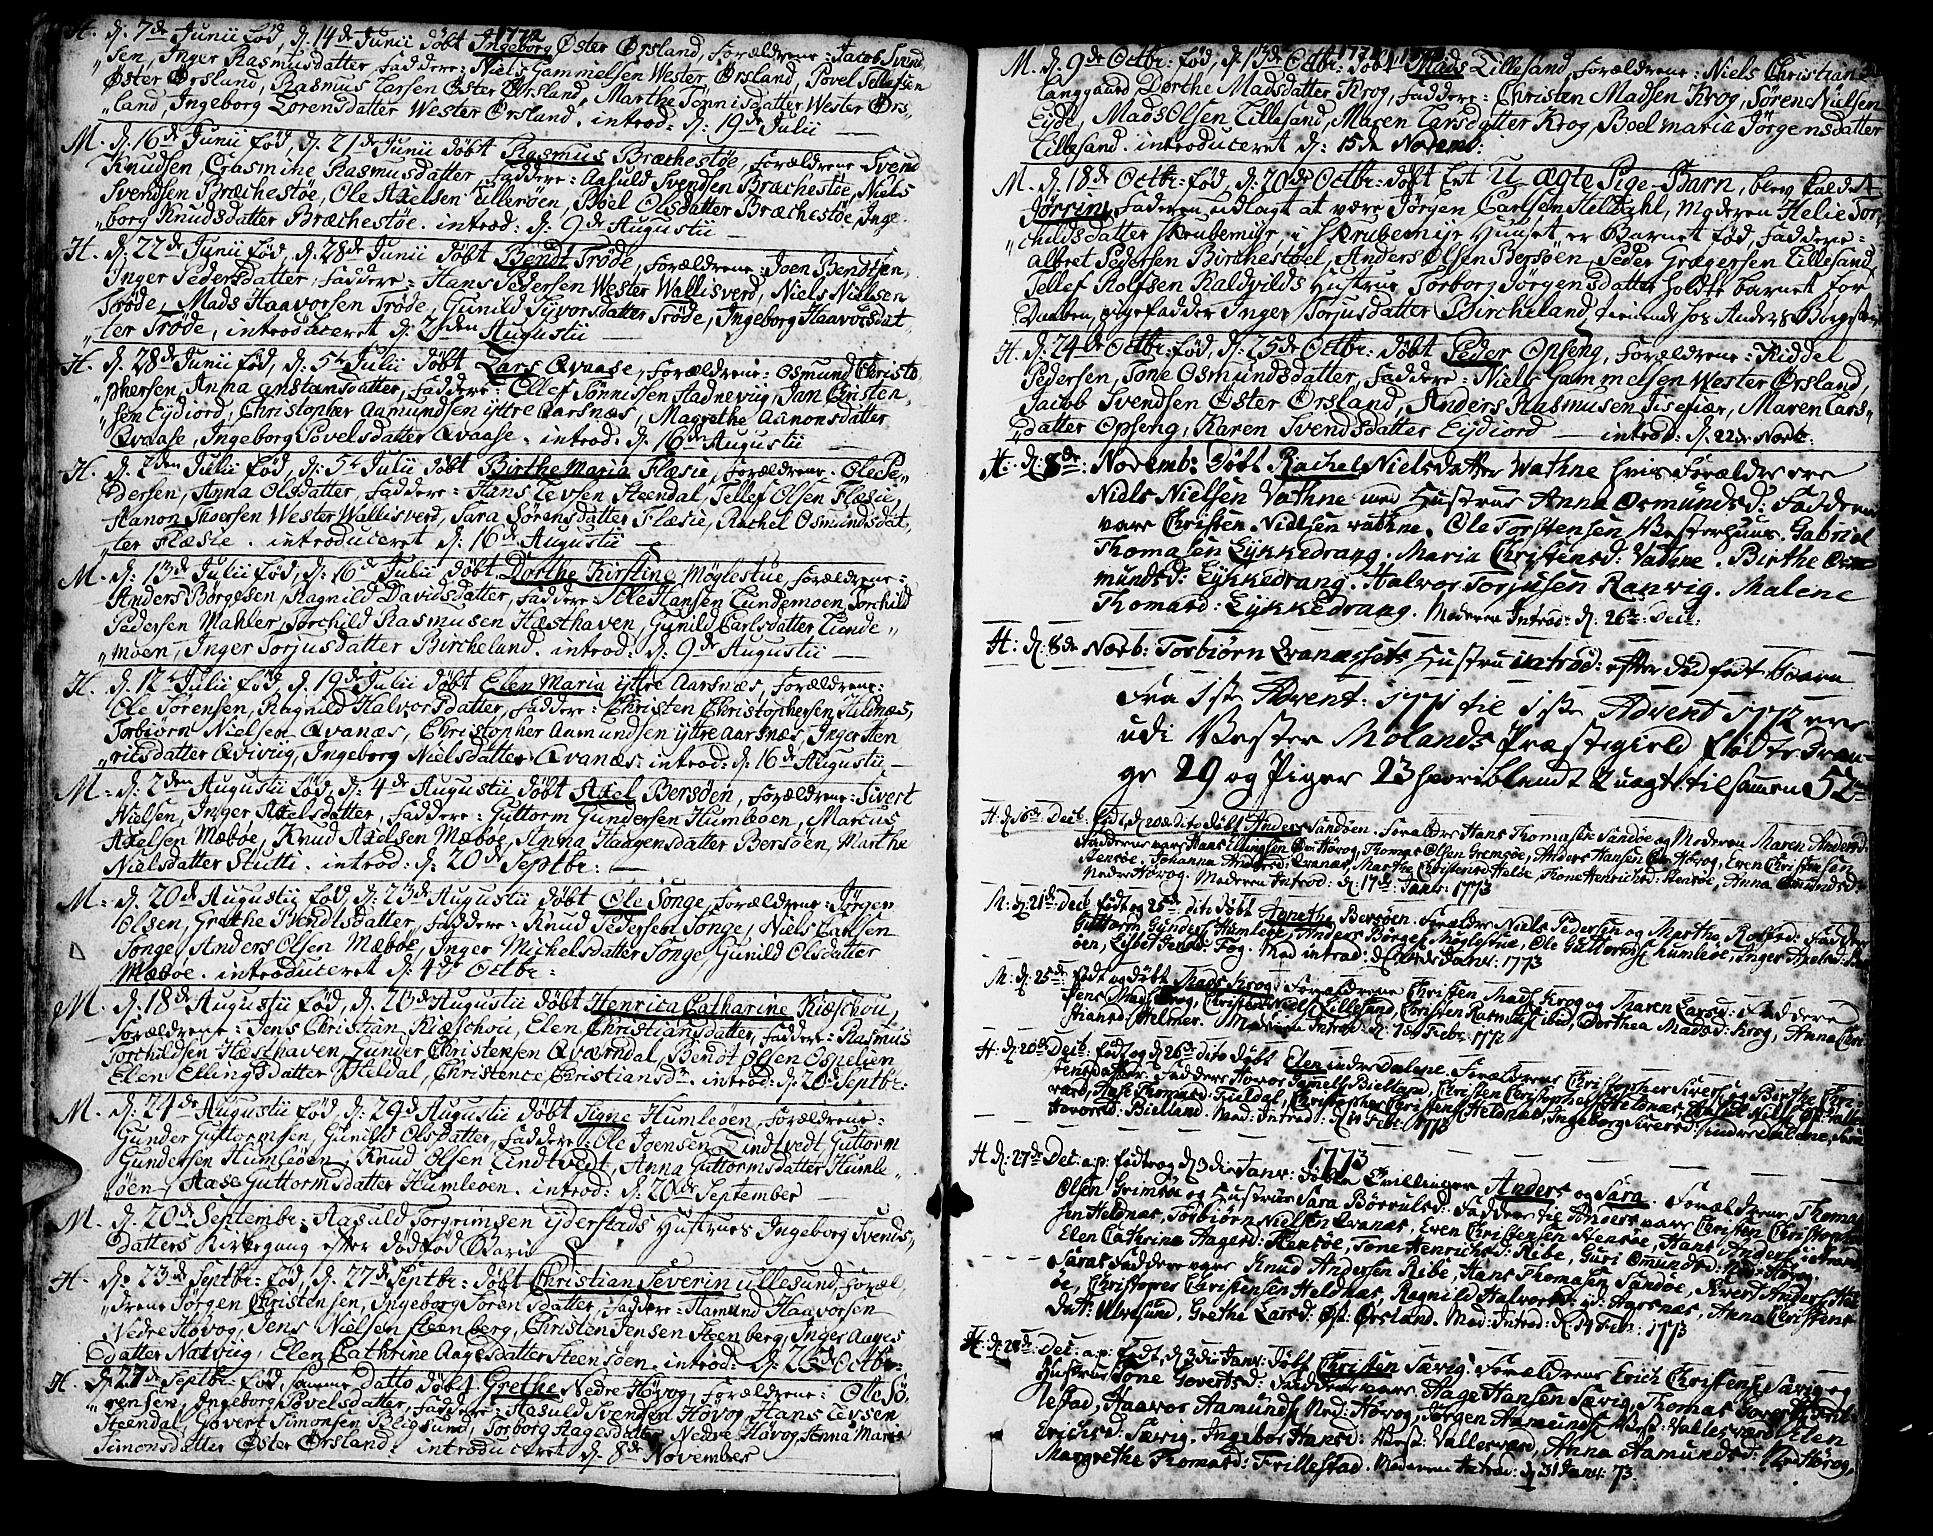 1772
H. d: 7de Junii fød, d. 14de Junii døbt Ingeborg Øster Ørsland, Forældrene: Jacob Svend
"sen, Inger Rasmusdatter, Faddere: Niels Gammelsen Wester Ørsland, Povel Tellefsen
Øster Ørsland, Rasmus Larsen Øster Ørsland, Marthe Tønnisdatter Wester Ørs"
"land, Ingeborg Lorensdatter Wester Ørsland. introd: d: 19de Julii
M. d: 16de Junii fød, d: 21de Junii døbt Rasmus Bræchestøe, Forældrene Svend
Knudsen, Erasmine Rasmusdatter, Faddere: Aasuld Svendsen Bræchestøe, Niels
Svendsen Bræchestøe, Ole Axelsen Tillerøen, Boel Olsdatter Bræchestøe, Inge"
"borg Knudsdatter Bræchestøe. introd: d: 9de Augustii
H. d: 22de Junii fød, d: 28de Junii døbt Bendt Trøde, Forældrene: Joen Bendtsen,
Inger Pedersdatter, Faddere: Hans Pedersen Wester Wallisverd, Niels Nielsen
Trøde, Mads Haavorsen Trøde, Gunild Syvorsdatter Trøde, Ingeborg Haavorsdat"
"ter Trøde, introduceret d: 2den Augustii
H. d: 28de Junii fød, d: 5te Julii døbt Lars Qvaase, Forældrene: Osmund Christo
"phersen, Anna Constansdatter, Faddere: Ollef Tønnissen Stadnevug, Jan Christen"
"sen Eydiord, Christopher Aamundsen yttre Aarsnæs, Magrethe Aanonsdatter
Qvaase, Ingeborg Povelsdatter Qvaase. introd: d: 16de Augustii
H. d: 2den Julii fød, d: 5te Julii døbt Birthe Maria Flæsie, Forældrene: Ole Pe"
"dersen, Anna Olsdatter, Faddere: Hans Levsen Steendal, Tellef Olsen Flæsie,
Aanon Thoersen Wester Wallisverd, Sara Sørensdatter Flæsie, Rachel Osmundsdat"
"ter Flæsie. introduceret d: 16de Augustii
M. d: 13de Julii fød, d: 16de Julii døbt Dorthe Kirstine Møglestue, Forældrene:
Anders Børgesen, Ragnild Davidsdatter, Faddere: Ole Hansen Lundemoen, Torchild
Pedersen Mahler, Torchild Rasmusen Hæsthaven, Gunild Carlsdatter Lunde"
"moen, Inger Torjusdatter Bircheland. introd: d: 9de Augustii
H. d: 12te Julii fød, d. 19de Julii døbt Elen Maria yttre Aarsnæs, Forældrene:
Ole Sørensen, Ragnild Halvorsdatter, Faddere: Christen Christophersen Hildnæs,
Torbiørn Nielsen Qvanæs, Christopher Aamundsen yttre Aarsnæs, Inger Hen
"richsdatter Qvivüg, Ingeborg Nielsdatter Qvanæs: introd: d. 16de Augustii
M. d: 2den Augustii fød, d: 4de Augustii døbt Axel Bersøen, Forældrene: Sivert
Nielsen, Inger Axelsdatter, Faddere: Guttorm Gundersen Humleøen, Marcus
Axelsen Mæbøe, Knud Axelsen Mæbøe, Anna Haagensdatter Bersøen, Marthe
Nielsdatter Stutti. introd: d: 20de Septbr:
M. d: 20de Augustij fød, d: 23de Augustii døbt Ole Songe, Forældrene: Jørgen
Olsen, Grethe Bendtsdatter, Faddere: Knud Pedersen Songe, Niels Larsen
Songe, Anders Olsen Mæbøe, Inger Michelsdatter Songe, Gunild Olsdatter
Mæbøe. introduceret d: 4de Octbr:
M. d: 18de Augustii fød, d: 23de Augustii døbt Henrica Catharine Riøschou,
Forældrene: Jens Christian Riøschou, Elen Christiansdatter, Faddere: Rasmus
Torchildsen Hæsthaven, Gunder Christensen Qværndal, Bendt Olsen Ospelien
Elen Ellingsdatter Heldal, Christence Christiansdr. introd: d: 20de Septbr:
M. d: 24de Augustii fød, d: 29de Augustii døbt Signe Humleøen, Forældrene:
Gunder Guttormsen, Gunild Olsdatter, Faddere: Ole Joensen Lindtvedt, Guttorm
Gundersen Humleøen, Knud Olsen Lindtvedt, Anna Guttormsdatter Humle"
"øen, Aase Guttormsdatter Humleøen. introd: d. 20de September
M. d. 20de Septembr: Aasuld Torgrimsen Yderstads Hustrues Ingeborg Svends"
datters Kirkegang efter dødfød Barn
H. d: 23de Septbr: fød, d: 27de Septbr: døbt Christian Severin Ullesund, Foræl"
"drene Jørgen Christensen, Ingeborg Sørensdatter, Faddere: Aamund Haavorsen
Nedre Høvog, Jens Nielsen Steenberg, Christen Jensen Steenberg, Inger Aages
datter Natvüg, Elen Cathrine Aagesdatter Steensøen. introd. d: 26de Octbr:
H. d: 27de Septbr: fød, samme datto døbt Grethe Nedre Høvog, Forældrene: Olle Sø"
"rensen, Ingeborg Povelsdatter, Faddere: Aasuld Svendsen Høvog, Hans Levsen
Steendal, Govert Simonsen Bliesund, Torborg Aagesdatter Nedre Høvog, Anna Marie
Simonsdatter Øster Ørsland. introduceret d: 8de November
1772
M. d. 9de Octbr: fød, d: 13de Octbr: døbt Mads Lillesand, Forældrene: Niels Christiansen
Langgaard Dorthe Madsdatter Krog, Faddere: Christen Madsen Krog, Søren Nielsen
Eyde, Mads Olsen Lillesand, Maren Larsdatter Krog, Boel Maria Jørgensdatter
Lillesand. introduceret d: 15de Novemb:
M. d. 18de Octbr: fød, d: 20de Octbr: døbt Eet U ægte Pige-Barn, blev kaldet
Jørren, Faderen udlagt at være Jørgen Carlsen Heldahl, Moderen Helie Tor"
"childsdatter Skrubemige, i Skrubemige Huuset er Barnet fød, Faddere:
Albret Pedersen Birchestøel, Anders Olsen Bersøen, Peder Grægersen Lillesand,
Tellef Rolfsen Kaldvilds Hustrue Torborg Jørgensdatter holdte barnet for
Daaben, pigefadder Inger Torjusdatter Bircheland, tienende hos Anders Børgesen
H. d: 24de Octbr: fød, d: 25de Octbr: døbt Peder Opseng, Forældrene: Kiddel
Pedersen, Tone Osmundsdatter, Faddere: Niels Gammelsen Wester Ørsland,
Jacob Svendsen Øster Ørsland, Anders Rasmusen Isefiær, Maren Lars"
"datter Opseng, Karen Svendsdatter Eydiord introd: d. 22de Novbr.
H. d. 8de: Novemb: døbt Rachel Nielsdatter Vathne hvis Forældre ere
Niels Nielsen Vathne med Hustrue Anna Osmundsd: Fadderne
vare Christen Nielsen Vathne. Ole Torstensen Vesterhuus. Gabriel
Thomasen Lykkedrang. Maria Christensd: Vathne. Birthe Os"
mundsd: Lykkedrang. Halvor Torjusen Ranvig. Malene
Thomasd: Lykkedrang. Moderen Introd: d. 26de Decb:
H: d: 8de Novb: Torbiørn Qvanæssets Hustru introd: efter dødfødt Baarn
Fra 1ste Advent: 1771 til 1ste Advent 1772 ere
udi Vester Molands Præstegield fødte Dren"
ge 29 og Piger 23 hvoriblandt 2 uægte tilsammen 52
H: d: 16de Decb. født, d: 20de dito døbt Anders Sandøen. Foræld. Hans Thomasen Sandøe og Moderen Maren Andersd:
Fadderne vare Hans Ellingsen Over Høvog, Thomas Olsen Gremsøe, Anders Hansen Over Høvog, Even Christensen
Stensøe. Johanna Andersd: Qvanæs, Marthe Christensd Heløe, Tone Henrichsd: Stensøe, Anna Omundsd:
Neder Høvog. Moderen Introd: d: 17de Janv: 1773
M: d: 21de Decb født og 25de dito døbt Agnethe Bersøen. Foræld: Niels Pedersen og Marthe Rolfsd. Fadder
Guttorm Gunders: Humleøe, Anders Børges: Møglestue, Ole Guttorms: Humleøe, Inger Axelsd:
øen, Lisbet Jensd: Fog. Mod introd: d: Janv: 1773
M: d: 25de Født og døbt Mads Krog. Forældrene Christen Mads: Krog og Maren Larsd: Faddere
Jens Mads: Krog, Christen Niels: Lillesand, Christen Rasmus: Ribe, Dorthea Madsd: Krog, Anna Chri"
stiansd: Helmer. Moderen Introd: d: Febr: 1773
H: d: 20de Decb: født og d 26de dito døbt Elen indre Dalene. Forældrene Christopher Sivers: og Birthe Chri"
stensdatter. Faddere Hovor Gamels: Bielland, Christen Christophers: Heldnæs,
vare, Aase Thomasd: Tueldal, Christopher Christens: Heldnæs, Ingeborg Siversd: indre Dalene,
Hovorsd: Bielland. Mod: Introd: d 14 Febr: 1773
1773
H d: 27de Dec: a: p: født og d 3die Janv: døbte Tvillinger Anders og Sara. Forældrene Thomas
Olsen Grimsøe og Hustrue Sara Børrulsd: Faddere til Anders vare Christen Christopher"
sen Heldnæs, Torbiørn Nielsen Qvanæs, Even Christensen Stensøe, Hans Anders:
Elen Cathrina Aagesd: Stensøe, Tone Henrichsd: Ribe, Guri Omundsd: Ned: Høvog.
Saras Faddere vare Knud Andersen Ribe, Hans Thomasen Sandøe, Sivert Anders: Hel"
øe, Christopher Christensen Heldnæs, Ragnild Halvorsd: yt: Aarsnæs, Anna Christens"
dat: Ulvesund, Grethe Larsd: Øst: Ørsland. Mod: Introd: d 14 Febr: 1773
H: d: 28de Dec: a: p: født, d 3die Janv: døbt Christen Særvig. Forældrene Erich Christens: Særvig og
Hustrue Tone Govertsd: Fadderne vare Aage Hansen Særvig, Thomas Goverts: Fril"
lestad, Haavor Aamunds: Ned: Høvog, Jørgen Aamunds: Vest: Vallesverd, Elen
Erichsd: Særvig, Ingebor Hansd: Vest: Vallesverd, Anna Aamundsd: Ned: Høvog,
Margrethe Thomasd: Frillestad. Moderen Introd: d 31 Janv: 73.